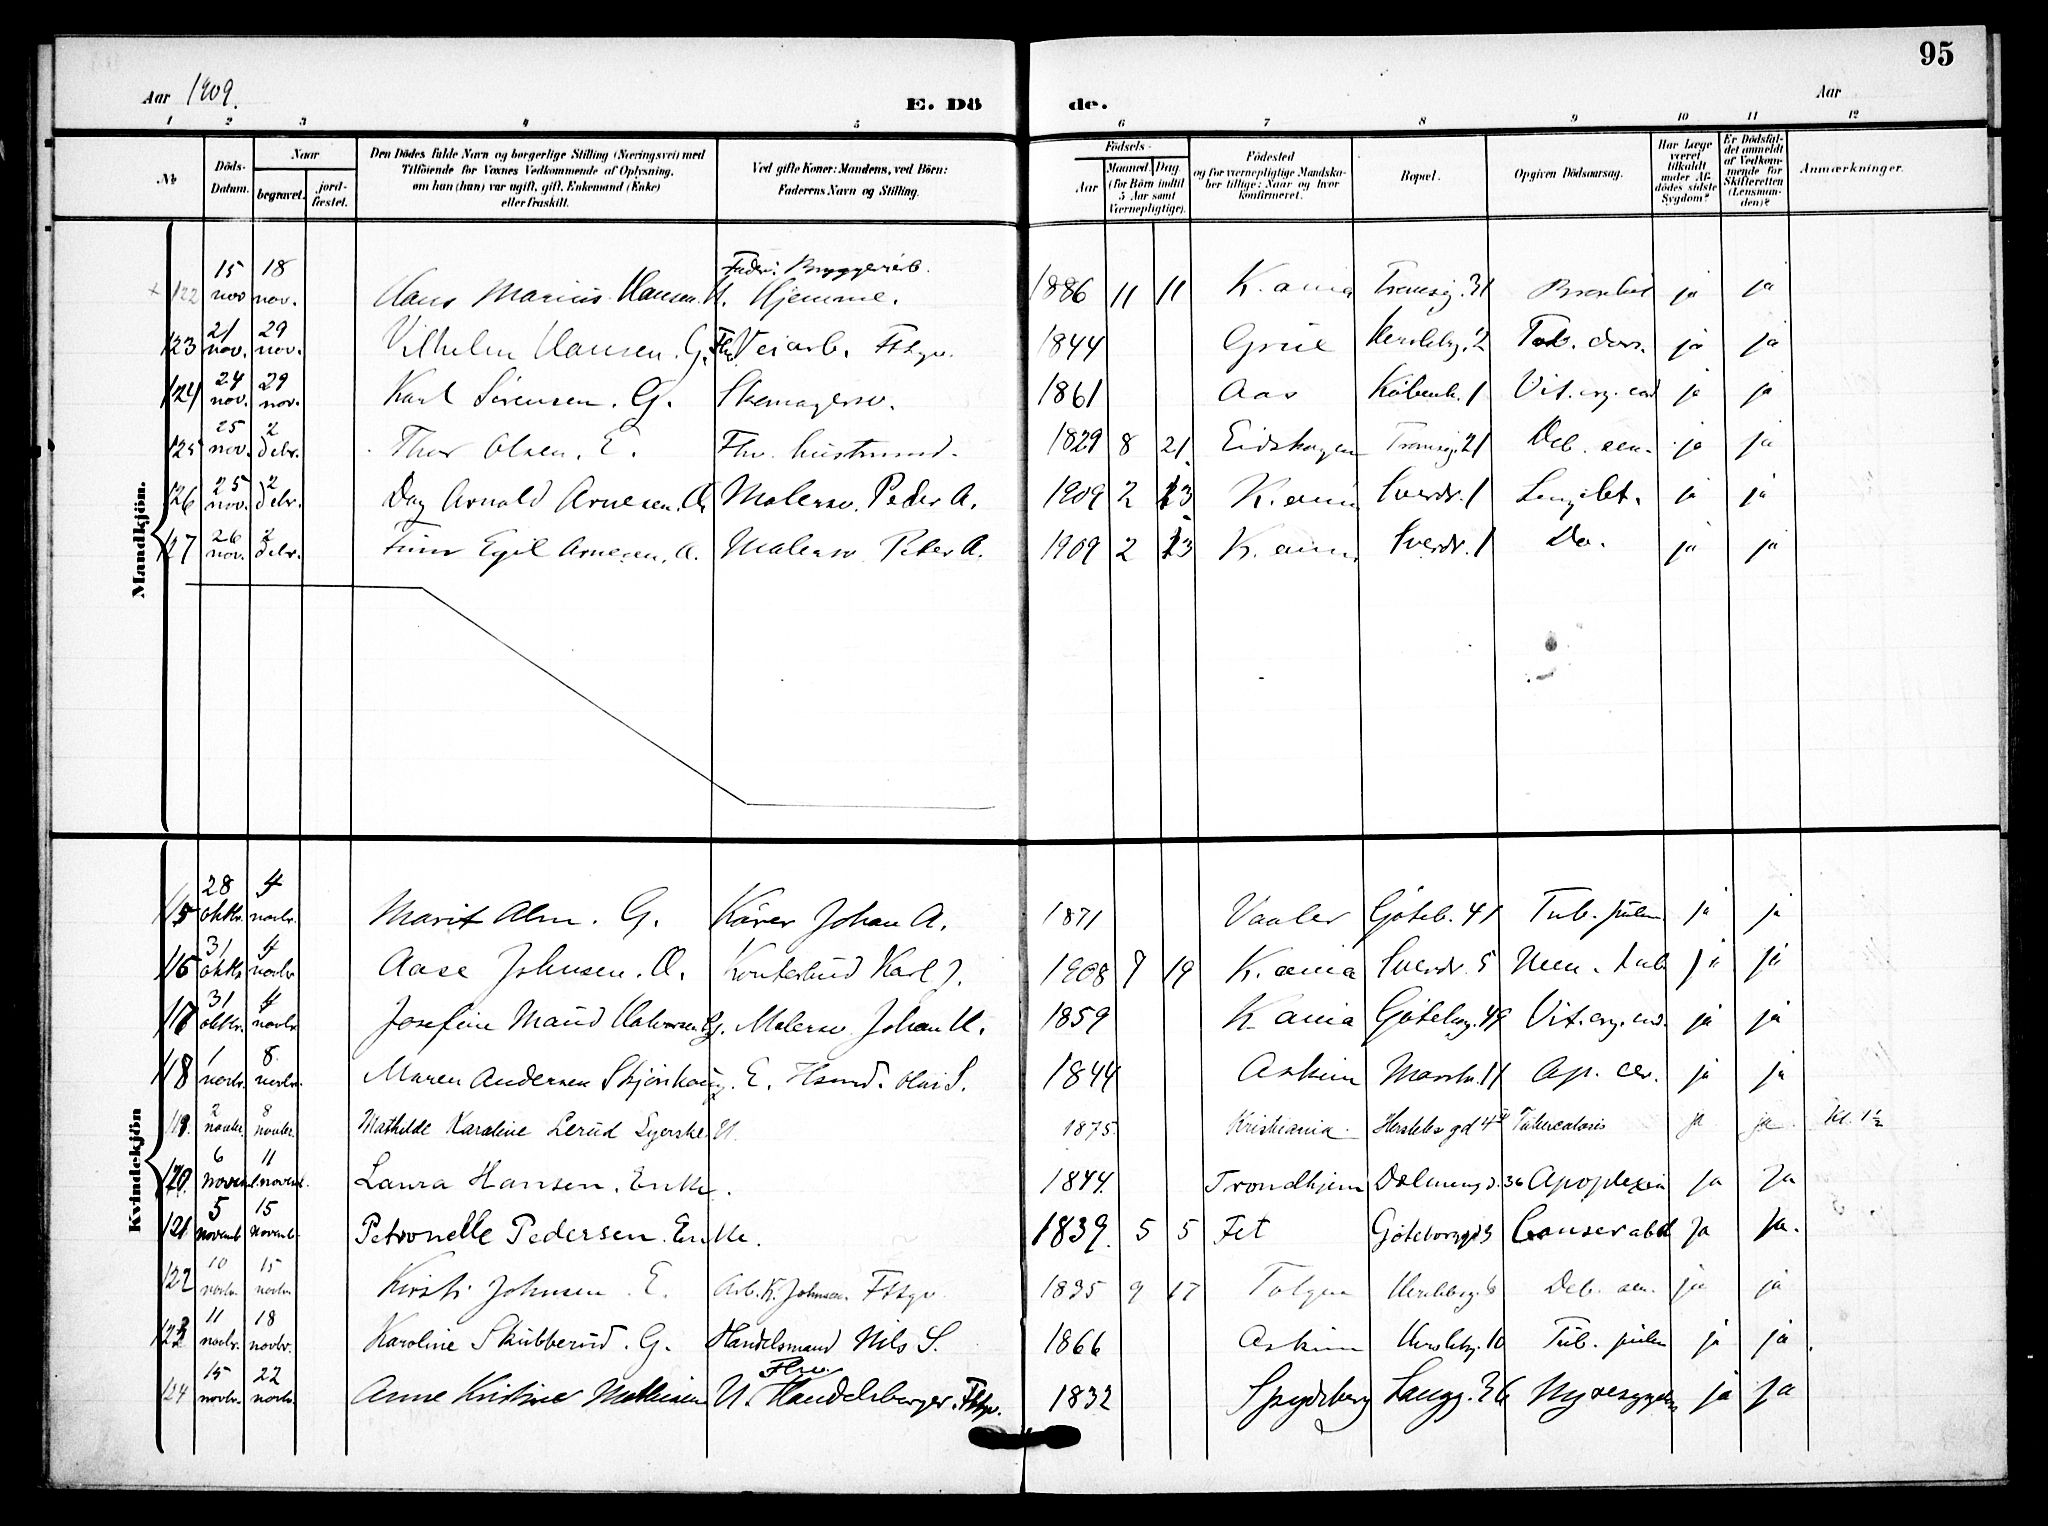 95
Aar 1909.
E. Dö de.
Aar
1 2 3 4 5 6 7 8 9 10 11 12
No
Döds-Datum.
Naar
begravet.
jord-fæstet.
Den Dödes fulde Navn og borgerlige Stilling (Næringsvei) med
Tilföiende for Voxnes Vedkommende af Oplysning,
om han (hun) var ugift, gift, Enkemand (Enke)
eller fraskilt.
Ved gifte Koner: Mandens, ved Börn:
Faderens Navn og Stilling.
Födsels-
Aar
Maaned. Dag.
(for Börn indtil
5 Aar samt
Værnepligtige).
Födested
og for værnepligtige Mandska-
ber tillige: Naar og hvor
konfirmeret.
Bopæl.
Opgiven Dödsaarsag.
Har Læge
været
tilkaldt
under Af-
dödes sidste
Sygdom?
Er Dödsfal-
det anmeldt
af Vedkom-
mende for
Skifteretten
(Lensman-
den)?
Anmærkninger.
Mandkjön.
122 15 nov 18 nov. Hans Marius Hansen. U. Fader: Bryggeriarb. Hjemme. 1886 11 11 K.ania 31 ja ja
123 21 nov. 29 nov. Vilhelm Hansen. G. Fhv. Veiarb. Ftsgv. 1844 Grue Herslebg. 2 Tub. ja ja
124 24 nov. 29 nov. Karl Sörensen. G. Skomagersv. 1861 Aas Köbenh. 1 Vit. org. cord ja ja
125 25 nov. 2 debr. Thor Olsen. E. Fhv. husmand. 1829 8 21 Eidskogen 21 Deb. sen. ja ja
126 25 nov. 2 debr. Dag Arnold Arnesen. U. Malersv. Peder A. 1909 2 13 K.ania Sverdr. 1 ja ja
127 26 nov. 2 debr. Finn Egil Arnesen. U. Malersv. Peter A. 1909 2 13 K.ania Sverdr. 1 Do. ja ja
Kvindekjön
115 28 oktbr. 4 novbr. Marit Alm. G. Kärer Johan A. 1871 Vaaler Göteb. 41 Tub. pulm ja ja
116 31 oktbr 4 novbr Aase Johnsen. U. Kontorbud Karl J. 1908 7 19 K.ania Sverdr. 5 Men. tub ja ja
117 31 oktbr. 4 novbr Josefine Maud Halvorsen G. Malersv. Johan H. 1859 K.ania Göteborg. 49 Vit. org. cord. ja ja
118 1 novbr. 8 novbr. Maren Andersen Skjönhaug. E. Hsmd. Olai S. 1844 Askim 11 Ap. cer. ja ja
119. 2 novbr. 8 novbr. Mathilde Karoline Lerud Syerske. U. 1875. Kristiania. Herslebs gd 4 Tuberculosis ja ja. Kl. 1½
120. 6 novemb. 11 novemb. Laura Hansen. Enke. 1844. Trondhjem Dælening d. 36 Apoplexia ja Ja
121. 5 novemb 15 novemb. Petronelle Pedersen. Enke. 1839. 5 5 Fet Göteborggd 3 Canser abd Ja Ja.
122 10 novbr. 15 novbr. Kirsti Johnsen E. Arb. K. Johnsen. Ftsgv. 1835 9 17 Tolgen Herslebsg. 6 Deb. sen. ja ja
123 11 novbr. 18 novbr. Karoline Skubberud. G. Handelsmand Nils S. 1866 Askim Herslebg. 10 Tub. pulm ja ja
124 15 novbr. 22 novbr. Anne Kristine Mathisen U. Fhv. Handelsborger. Ftsgv. 1832 Spydeberg Langg. 36 Nyresygdom ja Ja